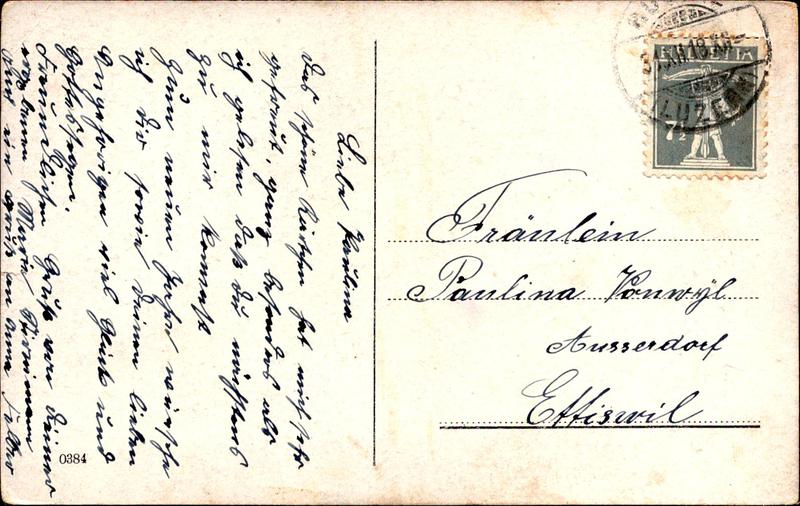 Liebe Paulina
Das schöne Kärtchen hat mich sehr
gefreut, ganz besonders als
ich gelesen daß du nächstens
zu mir kommst
Zum neuen Jahr wünsche
ich dir sowie deinen lieben
Angehörigen viel Glück und
Gottessegen.
Freundlichen Gruß von deiner
Marie
und ein Gruß an Anna
0384
HELVETIA
7½
31.XII.18.XII
LUZERN
Fräulein
Paulina Vonwyl
Ausserdorf
Ettiswil